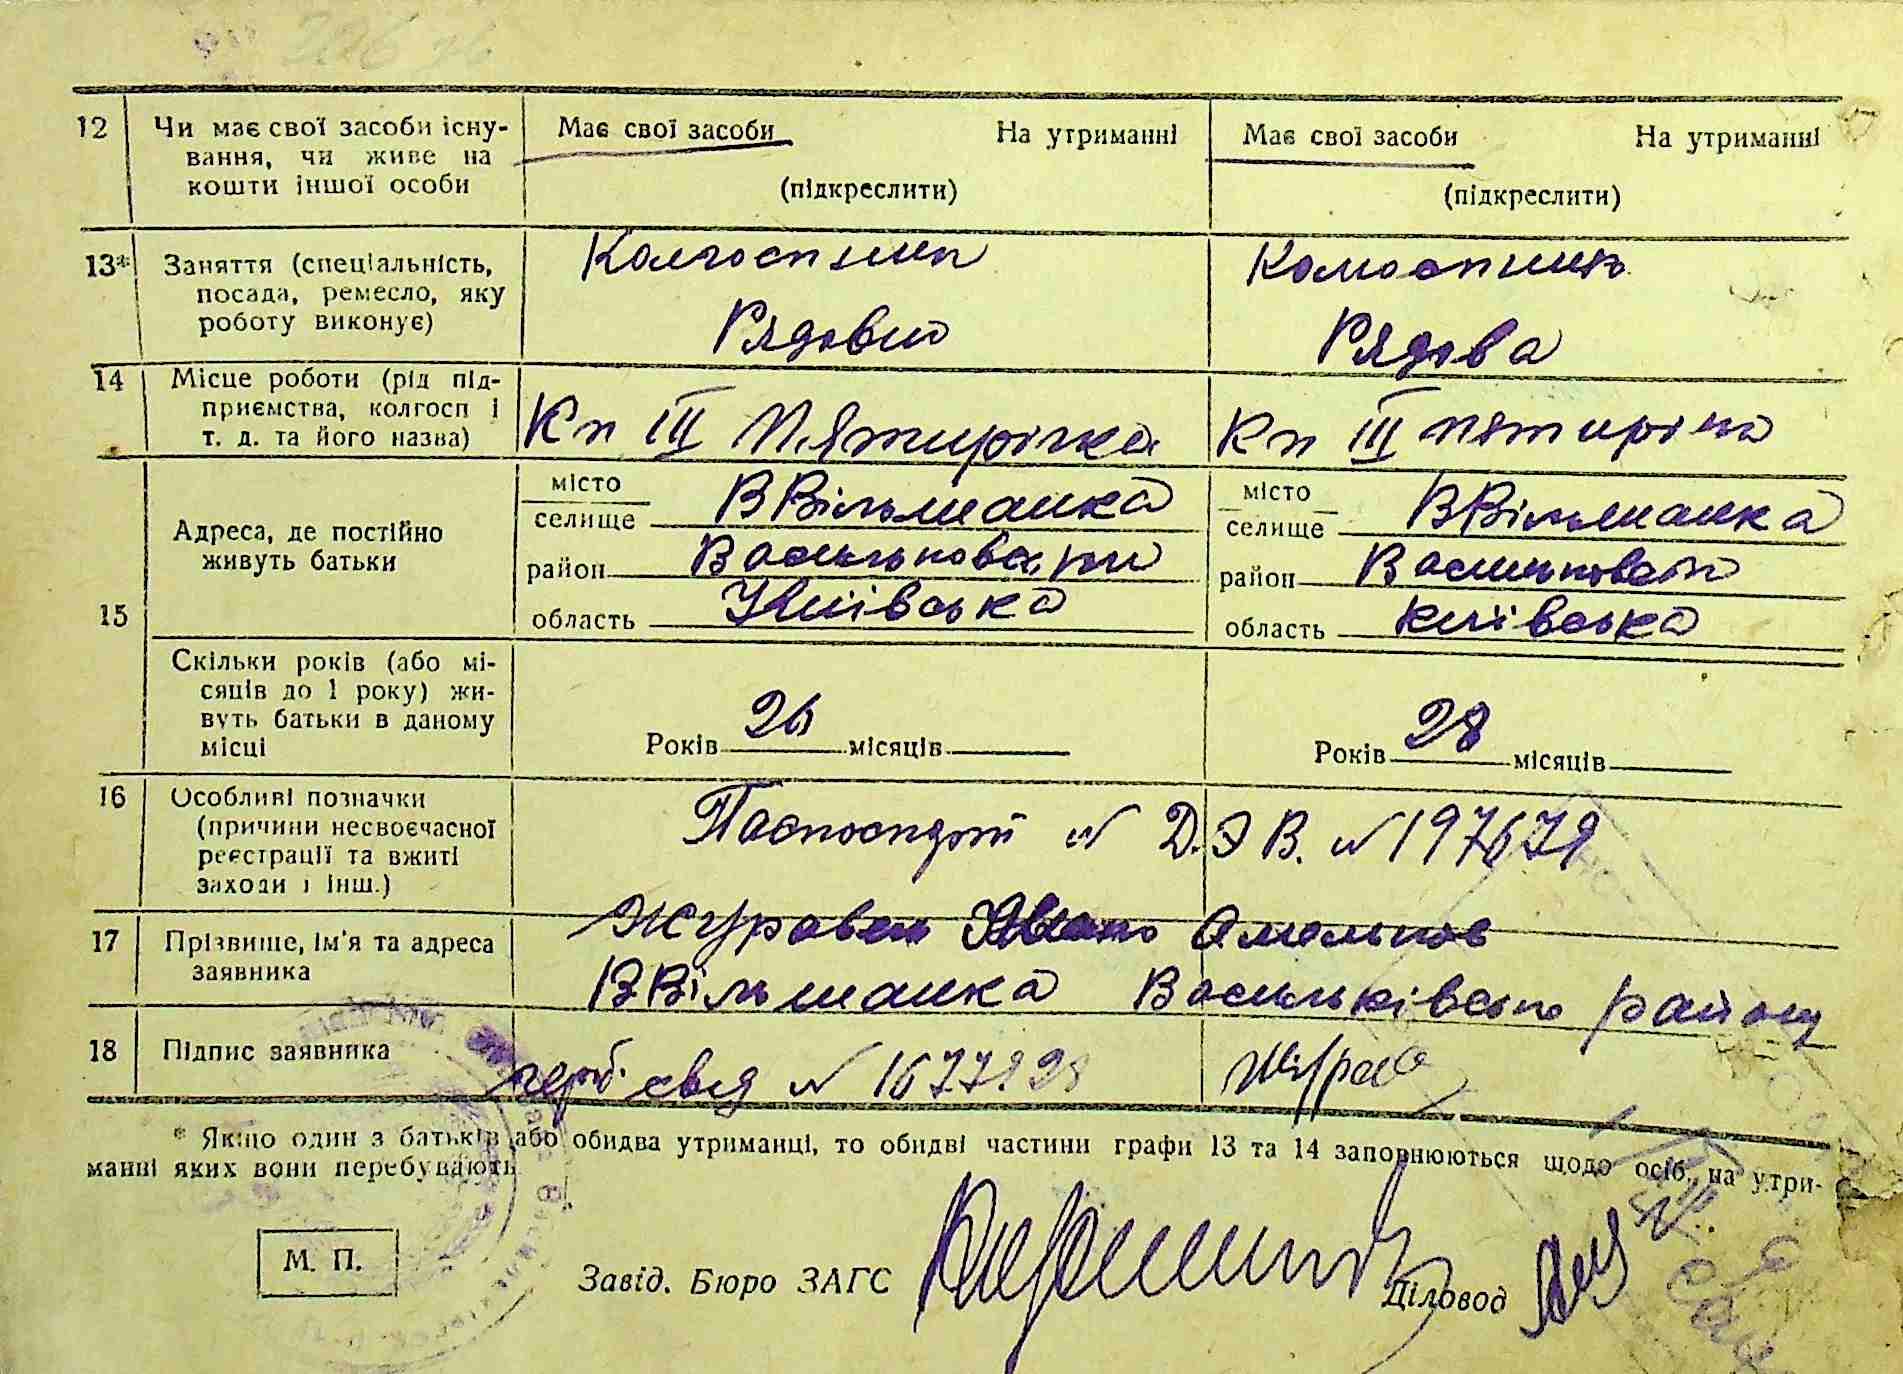 12 Чи має свої засоби існу- Має свої засоби На утриманні Має свої засоби На утриманні
вання, чи живе на
кошти іншої особи (підкреслити) (підкреслити)
13* Заняття (спеціальність, Колгоспник Колгоспник
посада, ремесло, яку
роботу виконує) Рядовий Рядова
14 Місце роботи (рід під-
приємства, колгосп і Кп III Пятирічка Кп III пятирічка
т. д. та його назва)
місто ВВільшанка місто ВВільшанка
селище селище
15 Адреса, де постійно
живуть батьки район Васильковск район Васильковск
область Київська область Київська
Скільки років (або мі-
сяців до 1 року) жи-
вуть батьки в даному Років 26 місяців Років 28 місяців
місці
16 Особливі позначки
(причини несвоєчасної Паспорт № Д.Э В. № 197679
реєстрації та вжиті
заходи і інш.)
17 Прізвище, ім'я та адреса Журавель Омельков
заявника ВВільшанка Васильківського району
18 Підпис заявника герб. свід №
* Якщо один з батьків або обидва утриманці, то обидві частини графи 13 та 14 заповнюються щодо осіб, на утри-
манні яких вони перебувають
М. П.
Завід. Бюро ЗАГС Діловод